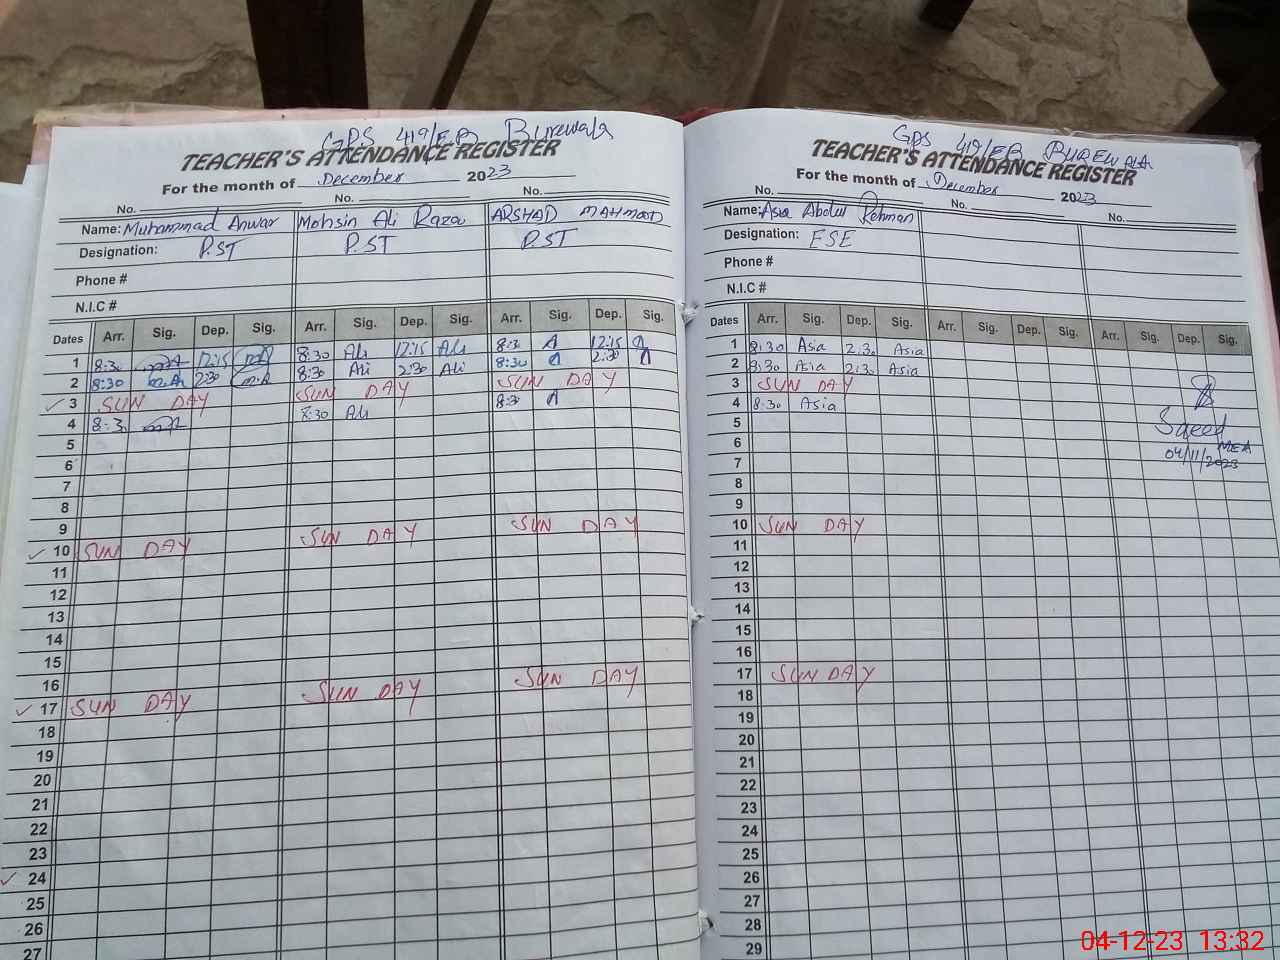 GPS 419/EB Burewala
TEACHER'S ATTENDANCE REGISTER
For the month of December 2023
No. No. No.
Name: Muhammad Anwar Mohsin Ali Raza ARSHAD MAHMOOD
Designation: P.ST P.ST P.ST
Phone #
N.I.C #
Dates Arr. Sig. Dep. Sig. Arr. Sig. Dep. Sig. Arr. Sig. Dep. Sig.
1 8:30 12:15 8:30 Ali 12:15 Ali 8:3 A 12:15
2 8:30 2:30 8:30 Ali 2:30 Ali 8:30 2:30
3 SUN DAY SUN DAY SUN DAY
4 8:3 8:30 Ali 8:3 A
5
6
7
8
9
10 SUN DAY SUN DAY SUN DAY
11
12
13
14
15
16
17 SUN DAY SUN DAY SUN DAY
18
19
20
21
22
23
24
25
26
27
GPS 419/EB BUREWALA
TEACHER'S ATTENDANCE REGISTER
For the month of December 2023
No. No. No.
Name: Asia Abdul Rehman
Designation: ESE
Phone #
N.I.C #
Dates Arr. Sig. Dep. Sig. Arr. Sig. Dep. Sig. Arr. Sig. Dep. Sig.
1 8:30 Asia 2:30 Asia
2 8:30 Asia 2:30 Asia
3 SUN DAY
4 8:30 Asia
5 Saeed
6 MEA
7 04/11/2023
8
9
10 SUN DAY
11
12
13
14
15
16
17 SUN DAY
18
19
20
21
22
23
24
25
26
27
28
29
04-12-23 13:32